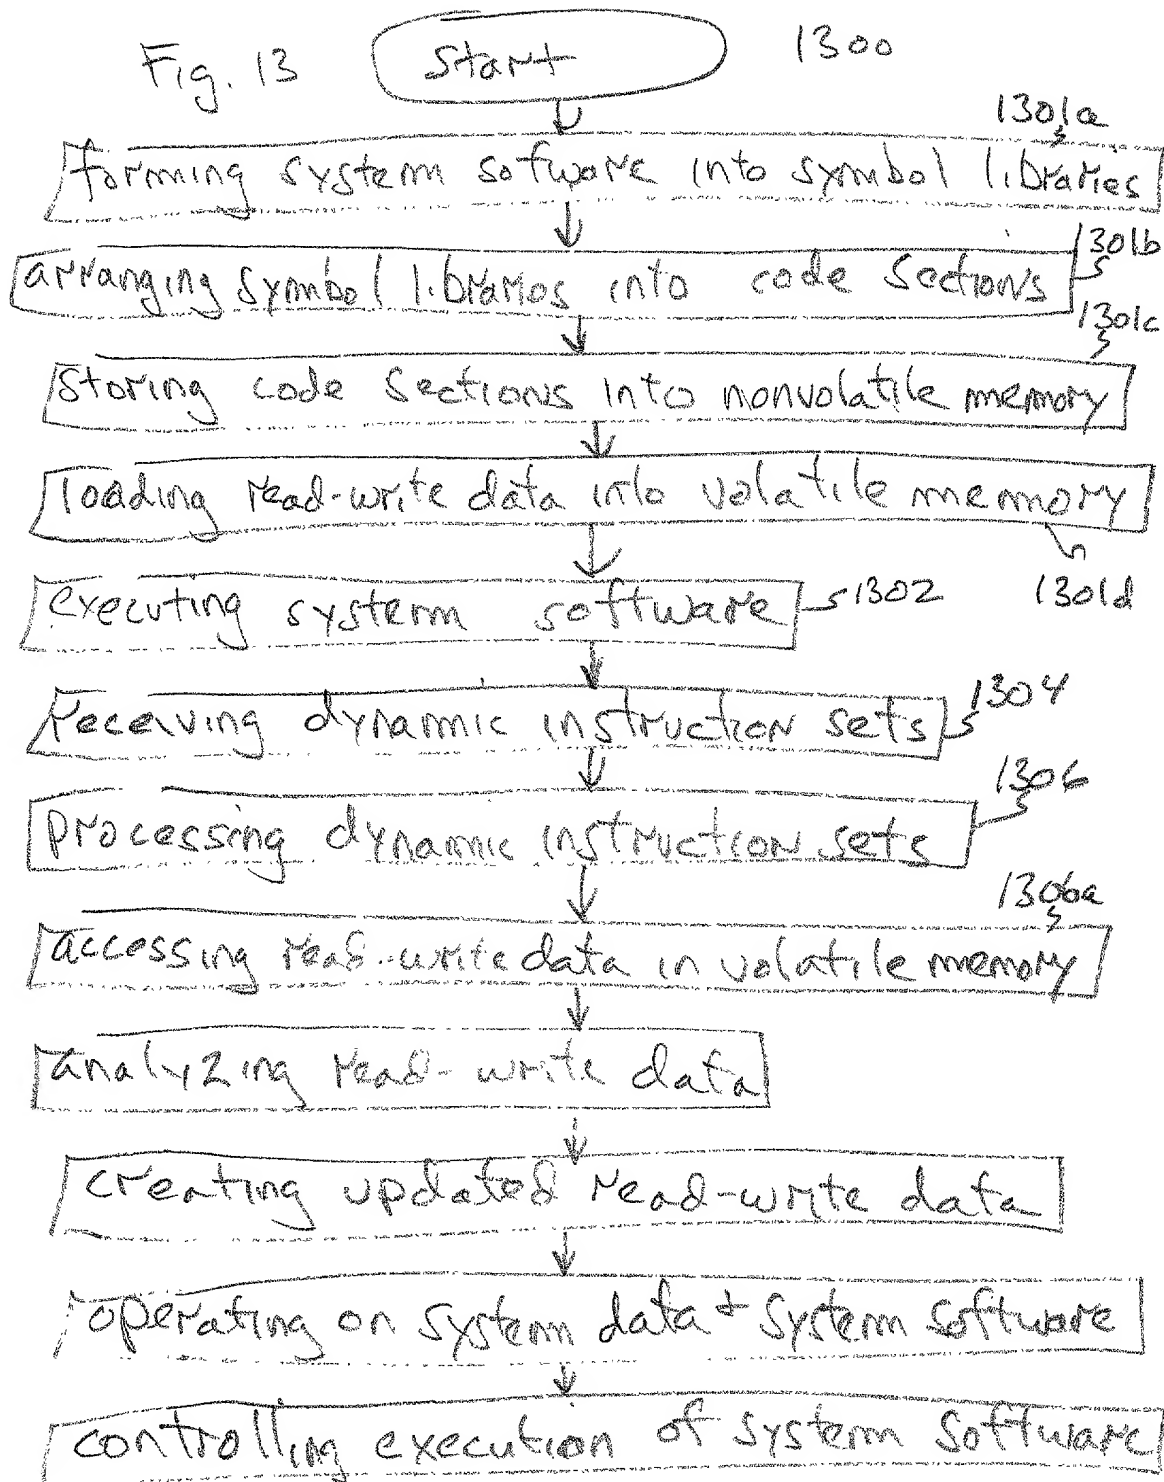 Fig. 13 Start 1300
1301a
forming system software into symbol libraries
1301b
arranging symbol libraries into code sections
1301c
storing code sections into nonvolatile memory
loading read-write data into volatile memory
executing system software 1302 1301d
receiving dynamic instruction sets 1304
1306
processing dynamic instruction sets
1306a
accessing read-write data in volatile memory
analyzing read-write data
creating updated read-write data
operating on system data + system software
controlling execution of system software